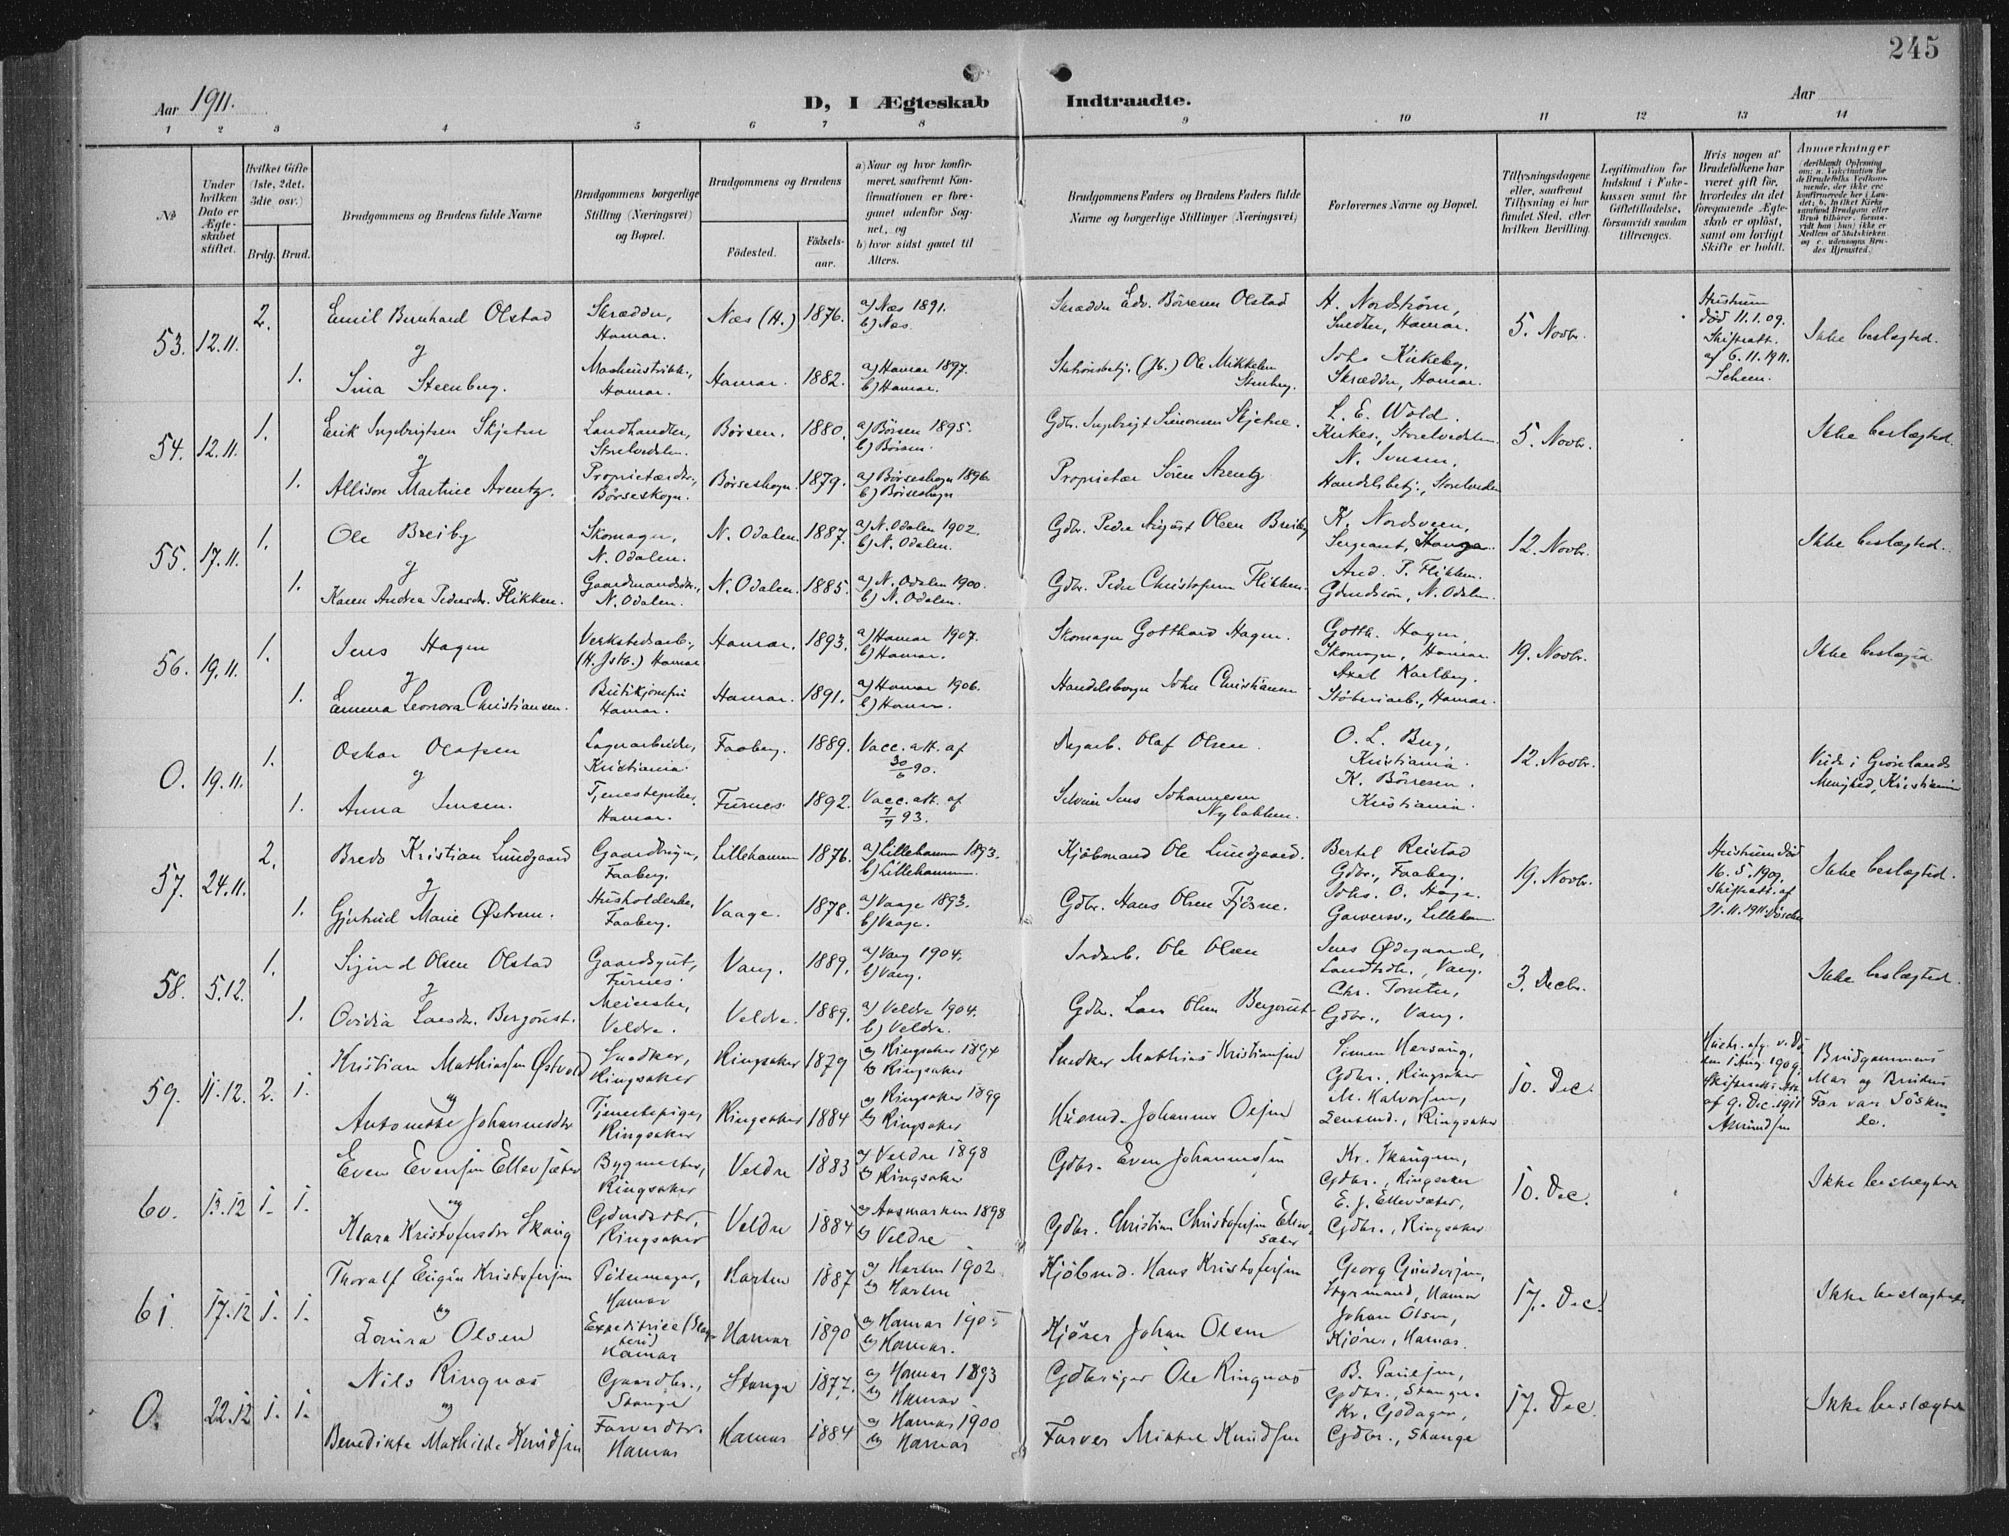 245
Aar 1911.
D, I Ægteskab Indtraadte.
Aar
1 2 3 4 5 6 7 8 9 10 11 12 13 14
No
Under hvilken Dato er Ægte-skabet stiftet.
Hvilket Gifte (1ste, 2det, 3die osv.)
Brdg. Brud.
Brudgommens og Brudens fulde Navne
Brudgommens borgerlige Stilling (Næringsvei) og Bopæl.
Brudgommens og Brudens
Födested.
Födsels-aar.
a) Naar og hvor konfir-meret, saafremt Kon-firmationen er fore-gaaet udenfor Sog-net, og
b) hvor sidst gaaet til Alters.
Brudgommens Faders og Brudens Faders fulde Navne og borgerlige Stillinger (Næringsvei)
Forlovernes Navne og Bopæl.
Tillysningsdagene eller, saafremt Tillysning ei har fundet Sted, efter hvilken Bevilling.
Legitimation for Indskud i Enke-kassen samt for Giftetilladelse, forsaavidt saadan tiltrænges.
Hvis nogen af Brudefolkene har været gift før, hvorledes da det foregaaende Ægte-skab er opløst, samt om lovligt Skifte er holdt.
Anmærkninger
53. 12.11. 2. Emil Bernhard Olstad Skrædder, Hamar. Næs (H.) 1876. a) Næs 1891. b) Næs. Skrædder Edv. Börresen Olstad H. Nordström, Snedker, Hamar. 5. Novbr. Hustruen död 11.1.09. Skifteatt. af 6.11.1911. Scheen. Ikke beslægted.
og
1. Sina Steenberg. Hamar. Hamar. 1882. a) Hamar 1897. b) Hamar. Stationsbetj. Ole Mikkelsen Stenberg. Johs Kirkeby, Skrædder, Hamar.
54. 12.11. 1. Erik Ingebrigtsen Skjetne Landhandler, Storelvedalen. Børsen. 1880. a) Børsen 1895. b) Börsen. Gdbr. Ingebrigt Simonsen Skjetne. L. E. Wold. Kirkes., Storelvedalen 5. Novbr. Ikke beslægted.
og
1. Allison Martine Arentz. Proprietærdtr., Børseskogn. Børseskogn. 1879. a) Børseskogn 1896. b) Børseskogn Proprietær Sören Arentz N. Svensen, Handelsbetj., Storelvedalen
55. 17.11. 1. Ole Breiby Skomager, N. Odalen. N. Odalen. 1887. a) N. Odalen 1902. b) N. Odalen. Gdbr. Peder August Olsen Breiby K. Nordsveen, Sergeant, Stange. 12. Novbr. Ikke beslægted.
og
1. Karen Andrea Pedersdtr. Flikken. Gaardmandsdtr., N. Odalen. N. Odalen. 1885. a) N. Odalen 1900. b) N. Odalen. Gdbr. Peder Christofersen Flikken. And. P. Flikken. Gdmdssön, N. Odalen.
56. 19.11. 1. Jens Hagen Verkstedsarb., (H. Jstb.) Hamar Hamar. 1893. a) Hamar 1907. b) Hamar. Skomager Gotthard Hagen. Gotth. Hagen, Skomager, Hamar. 19. Novbr. Ikke beslægted
og
1. Emma Leonora Christiansen. Butikjomfru Hamar. Hamar. 1891. a) Hamar 1906. b) Hamar. Handelsborger John Christiansen Axel Karlberg, Støberiarb., Hamar.
0. 19.11. 1. Oskar Olafsen Lagerarbeider, Kristiania. Faaberg. 1889. Vacc. att. af 30/6 90. Dagarb. Olaf Olsen. O. L. Berg, Kristiania. 12. Novbr. Viede i Grönlands Menighed, Kristiania
og
1. Anna Jensen. Tjenestepike, Hamar. Furnes. 1892. Vacc. att. af 7/7 93. Selveier Jens Johannesen Nybakken. K. Börresen. Kristiania.
57. 24.11. 2. Brede Kristian Lundgaard Gaardbruger, Faaberg. Lillehammer 1876. a) Lillehammer 1893. b) Lillehammer. Kjöbmand Ole Lundgaard. Bertel Reistad Gdbr., Faaberg. 19. Novbr. Hustruen död 16.5.1909. Skifteatt. af 21.11.1911. Ikke beslægted.
og
1. Gjertrud Marie Østrem. Husholderske, Faaberg. Vaage. 1878. a) Vaage 1893. b) Vaage. Gdbr. Hans Olsen Fjösne. Johs. O. Hage. Garversv., Lilleham.
58. 5.12. 1. Sigurd Olsen Olstad Gaardsgut, Furnes. Vang. 1889. a) Vang 1904. b) Vang. Jordarb. Ole Olsen Jens Ødegaard, Landhdl., Vang. 3. Decbr. Ikke beslægted.
og
1. Ovidia Larsdtr. Bergsrust. Meierske, Veldre. Veldre. 1889. a) Veldre 1904. b) Veldre. Gdbr. Lars Olsen Bergsrust Chr. Torseter, Gdbr., Vang.
59. 11.12. 2. 1. Kristian Mathiassen Østvold Snedker, Ringsaker Ringsaker 1879 a) Ringsaker 1894 b) Ringsaker Snedker Mathias Kristiansen Simen Harsang, Gdbr., Ringsaker 10. Dec. Hustr. afg. v. Döden 1 Aug. 1909. Skifteretts Att. af 9. Dec. 1911 Amundsen Brudgommens Mor og Brudens Far var Söskende.
og
Antonette Johannesdtr Tjenestepige, Ringsaker Ringsaker 1884 a) Ringsaker 1899 b) Ringsaker Husmd. Johannes Olsen M. Halvorsen, Lensmd., Ringsaker
60. 13.12 1. 1. Even Evensen Ellevsæter Bygmester, Ringsaker Veldre 1883 a) Veldre 1898 b) Ringsaker Gdbr. Even Johannessen Kr. Skaugen, Gdbr., Ringsaker 10. Dec. Ikke beslægtede
og
Klara Kristofersdtr Skaug Gdmdsdtr., Ringsaker Veldre 1884 a) Aasmarken 1898 b) Veldre Gdbr. Christian Christofersen Ellevsæter E. J. Ellevsæter, Gdbr., Ringsaker
61. 17.12 1. 1. Thoralf Eugen Kristofersen Pølsemager, Hamar Horten 1887 a) Horten 1902 b) Horten Kjöbmd. Hans Kristofersen Georg Gundersen, Styrmand, Hamar 17. Dec. Ikke beslægtede
og
Lovisa Olsen Expeditrice Hamar Hamar 1890 a) Hamar 1905 b) Hamar. Kjörer Johan Olsen Johan Olsen, Kjörer, Hamar.
0. 22.12 1. 1. Nils Ringnæs Gaardbr., Stange Stange 1877. a) Hamar 1893 b) Hamar Gdbruger Ole Ringnæs B. Paulsen, Gdbr., Stange. 17. Dec. Ikke beslægtede
og
Benedikte Mathilde Knudsen Farverdtr. Hamar Hamar 1884 a) Hamar 1900 b) Hamar Farver Mikkel Knudsen Kr. Godager, Gdbr., Stange